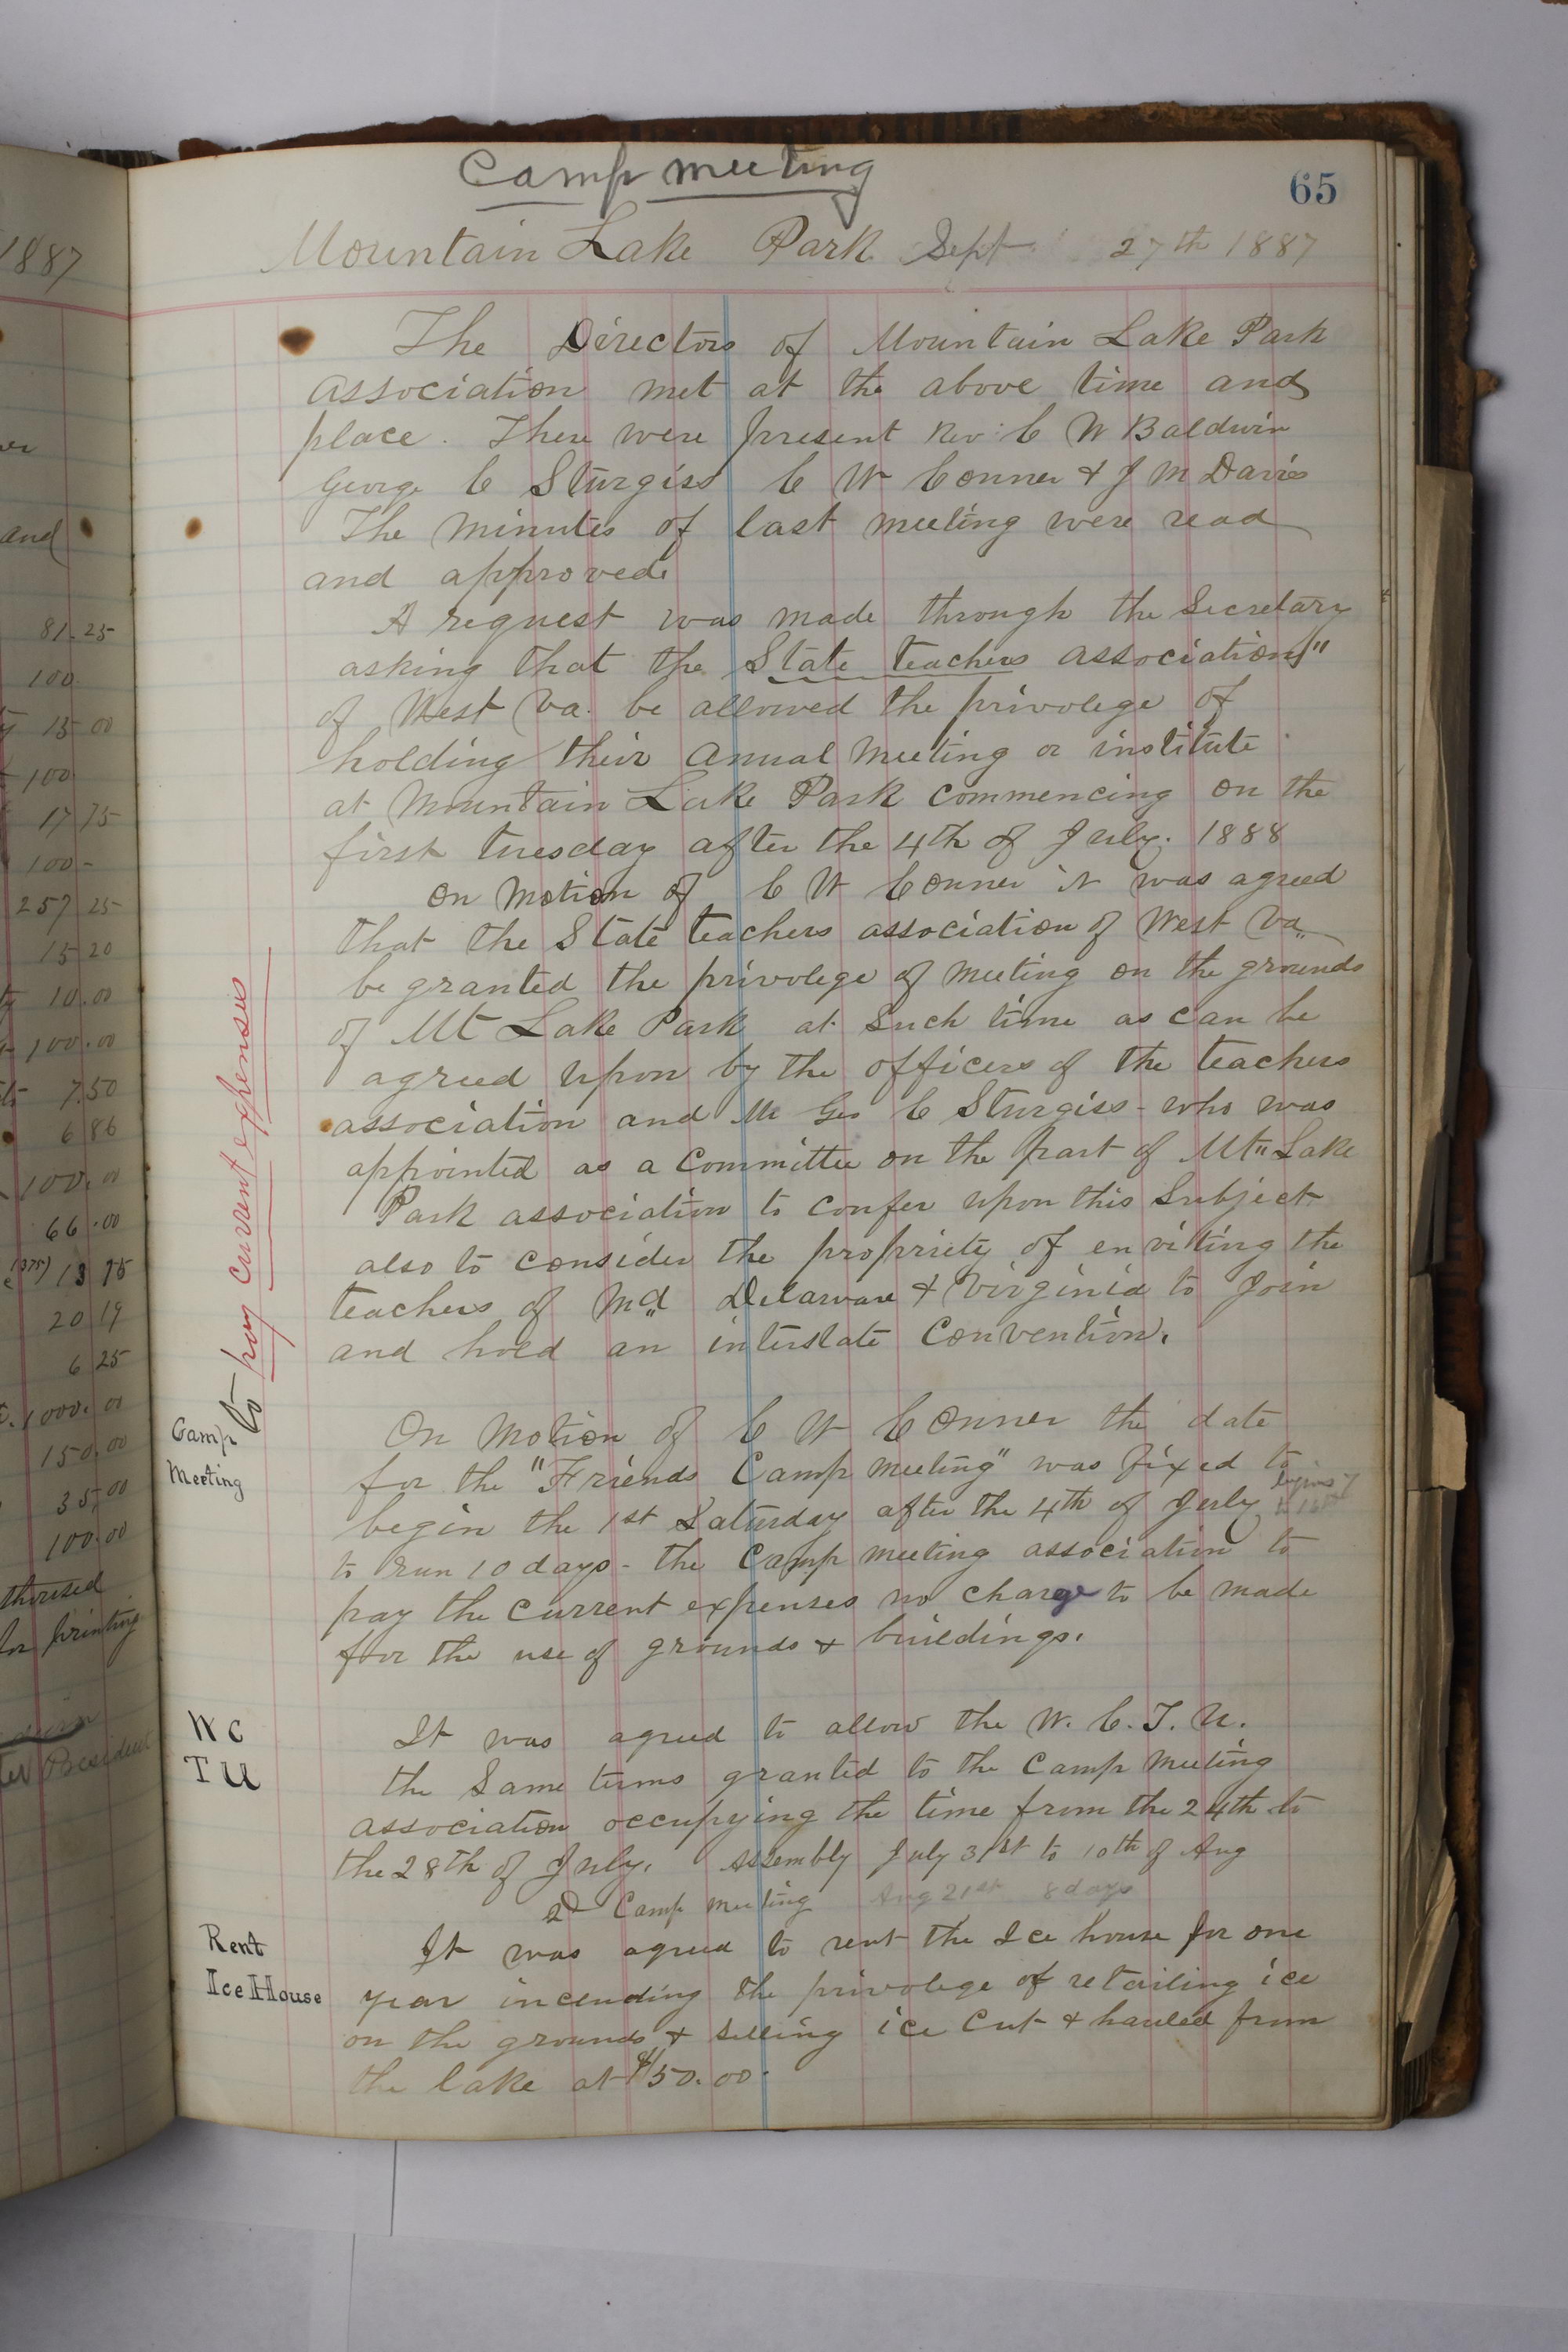 1887
and
81.25
100
15 00
100
17 75
100-
257 25
15 20
10.00
100.00
7.50
6 86
100.00
66.00
13 75
20 19
6 25
1000.00
150.00
35.00
100.00
thorised
for printing
President
Camp meeting
65
Mountain Lake Park Sept 27th 1887
The Directors of Mountain Lake Park
association met at the above time and
place. There were present Rev. C W Baldwin
George C Sturgiss C W Conner & J M Davis
The minutes of last meeting were read
and approved.
A request was made through the Secretary
asking that the State teachers association"
of West Va. be allowed the privolege of
holding their anual meeting or institute
at Mountain Lake Park commencing on the
first tuesday after the 4th of July. 1888
on motion of C W Conner it was agreed
that the State teachers association of West Va
be granted the privolege of meeting on the grounds
of Mt Lake Park at such time as can be
agreed upon by the officers of the teachers
association and Mr Geo C Sturgiss - who was
appointed as a committee on the part of Mtn Lake
Park association to confer upon this subject
also to consider the propriety of enviting the
teachers of Md Delaware & Virginia to join
and hold an interstate convention.
to pay current expenses
Camp
Meeting
On motion of C W Conner the date
for the "Friends Camp meeting" was fixed to
begin the 1st Saturday after the 4th of July begins 7
to run 10 days - the Camp meeting association to
pay the current expenses no charge to be made
for the use of grounds & buildings.
W C
T U
It was agreed to allow the W. C. T. U.
the same terms granted to the camp meeting
association occupying the time from the 24th to
the 28th of July. Assembly July 31st to 10th of Aug
2d Camp meeting Aug 21st 8 days
Rent
Ice House
It was agreed to rent the Ice house for one
year incending the privolege of retailing ice
on the grounds & selling ice cut & hauled from
the lake at $50.00.